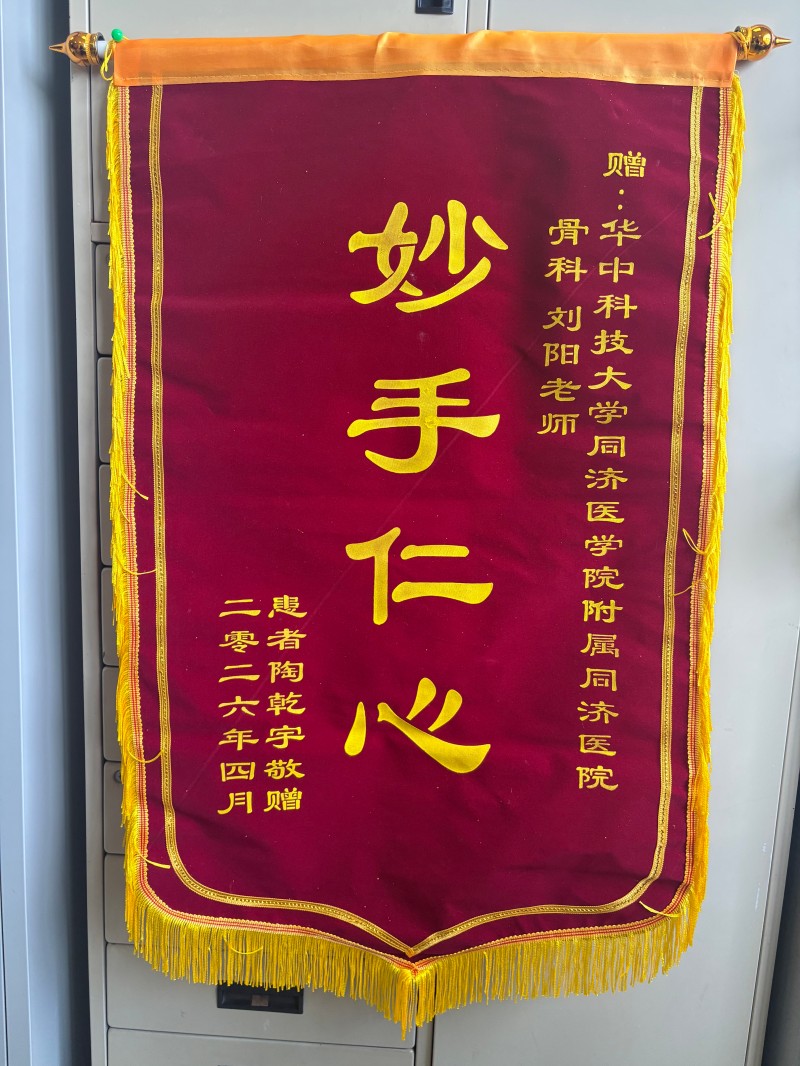 赠：华中科技大学同济医学院附属同济医院
骨科 刘阳老师
妙手仁心
患者陶乾宇敬赠
二零二六年四月